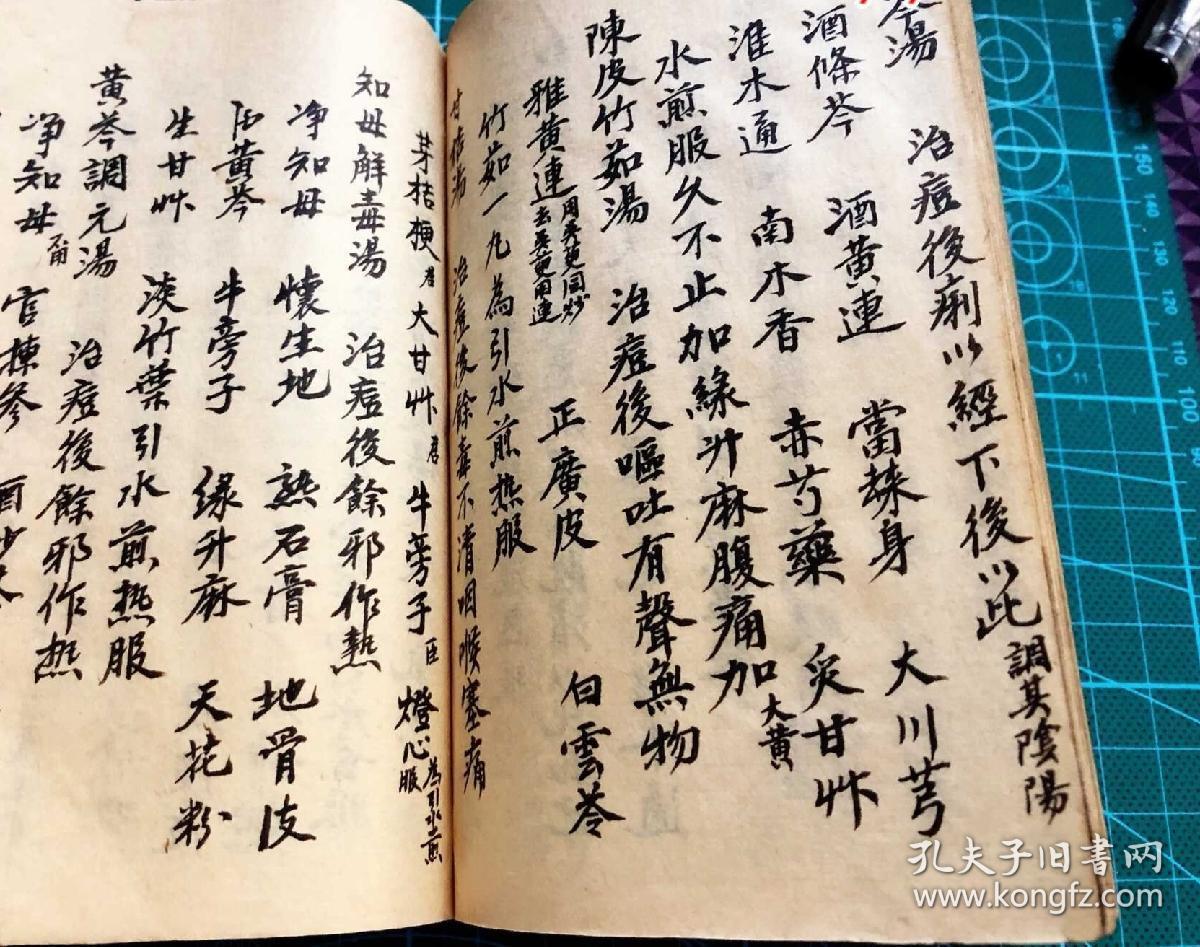 湯 治痘後痢以經下後以此調其陰陽
酒條芩 酒黃連 當歸身 大川芎
淮木通 南木香 赤芍藥 炙甘艸
水煎服久不止加綠升麻腹痛加大黃
陳皮竹茹湯 治痘後嘔吐有聲無物
雅黃連 正廣皮 白雲苓
竹茹一丸為引水煎熱服
甘桔湯 治痘後餘毒不清咽喉塞痛
芽桔梗 君 大甘艸 君 牛旁子 臣 燈心為引水煎服
知母解毒湯 治痘後餘邪作熱
净知母 懷生地 熟石膏 地骨皮
黃芩 牛旁子 緑升麻 天花粉
生甘艸 淡竹葉引水煎熱服
黃芩調元湯 治痘後餘邪作熱
净知母 官揀參 酒炒
孔夫子旧书网
www.kongfz.com
150
140
130
120
110
100